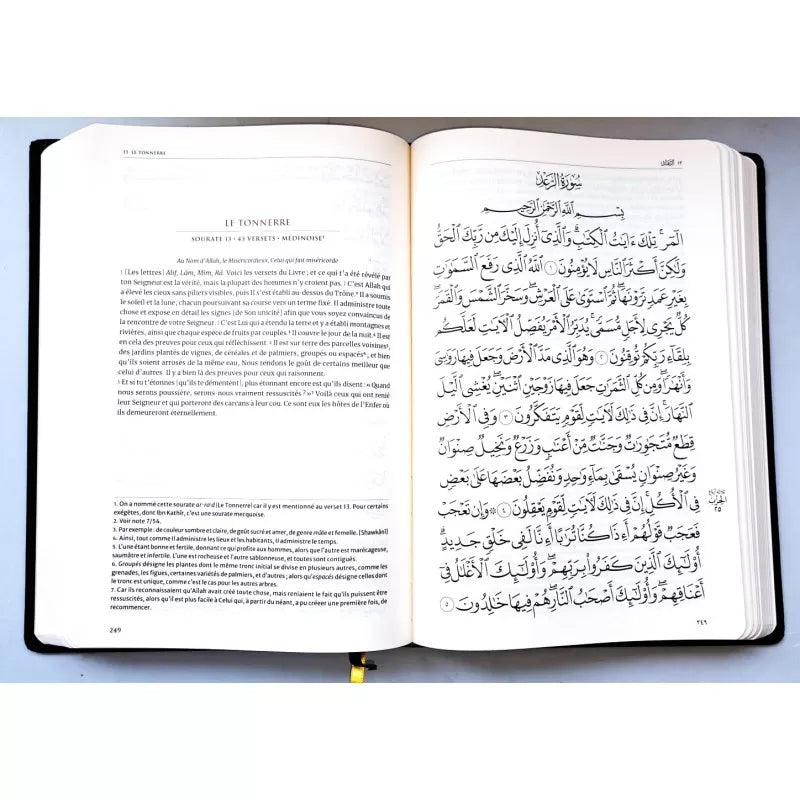 13 LE TONNERRE
LE TONNERRE
SOURATE 13 • 43 VERSETS • MÉDINOISE¹
Au Nom d'Allah, le Miséricordieux, Celui qui fait miséricorde
1 [Les lettres] Alif, Lâm, Mîm, Râ. Voici les versets du Livre ; et ce qui t'a été révélé par
ton Seigneur est la vérité, mais la plupart des hommes n'y croient pas. 2 C'est Allah qui
a élevé les cieux sans piliers visibles, puis Il s'est établi au-dessus du Trône.² Il a soumis
le soleil et la lune, chacun poursuivant sa course vers un terme fixé. Il administre toute
chose et expose en détail les signes [de Son unicité] afin que vous soyez convaincus de
la rencontre de votre Seigneur. 3 C'est Lui qui a étendu la terre et y a établi montagnes et
rivières, ainsi que chaque espèce de fruits par couples.³ Il couvre le jour de la nuit.⁴ Il est
en cela des preuves pour ceux qui réfléchissent. 4 Il est sur terre des parcelles voisines⁵,
des jardins plantés de vignes, de céréales et de palmiers, groupés ou espacés⁶, et bien
qu'ils soient arrosés de la même eau, Nous rendons le goût de certains meilleur que
celui d'autres. Il y a bien là des preuves pour ceux qui raisonnent.
5 Et si tu t'étonnes [qu'ils te démentent], plus étonnant encore est qu'ils disent : « Quand
nous serons poussière, serons-nous vraiment ressuscités ? »⁷ Voilà ceux qui ont renié
leur Seigneur et qui porteront des carcans à leur cou. Ce sont eux les hôtes de l'Enfer où
ils demeureront éternellement.
1. On a nommé cette sourate ar-ra'd [Le Tonnerre] car il y est mentionné au verset 13. Pour certains
exégètes, dont Ibn Kathîr, c'est une sourate mecquoise.
2. Voir note 7/54.
3. Par exemple : de couleur sombre et claire, de goût sucré et amer, de genre mâle et femelle. [Shawkânî]
4. Ainsi, tout comme Il administre les lieux et les habitants, Il administre le temps.
5. L'une étant bonne et fertile, donnant ce qui profite aux hommes, alors que l'autre est marécageuse,
saumâtre et infertile. L'une est rocheuse et l'autre sablonneuse, et toutes sont contiguës.
6. Groupés désigne les plantes dont le même tronc initial se divise en plusieurs autres, comme les
grenades, les figues, certaines variétés de palmiers, et d'autres ; alors qu'espacés désigne celles dont
le tronc est unique, comme c'est le cas pour les autres arbres.
7. Car ils reconnaissaient qu'Allah avait créé toute chose, mais reniaient le fait qu'ils puissent être
ressuscités, alors qu'il est plus facile à Celui qui, à partir du néant, a pu créer une première fois, de
recommencer.
249
١٣
سُورَةُ الرَّعْدِ
بِسْمِ اللَّهِ الرَّحْمَٰنِ الرَّحِيمِ
الٓمٓر ۚ تِلْكَ ءَايَٰتُ ٱلْكِتَٰبِ ۗ وَٱلَّذِىٓ أُنزِلَ إِلَيْكَ مِن رَّبِّكَ ٱلْحَقُّ
وَلَٰكِنَّ أَكْثَرَ ٱلنَّاسِ لَا يُؤْمِنُونَ ١ ٱللَّهُ ٱلَّذِى رَفَعَ ٱلسَّمَٰوَٰتِ
بِغَيْرِ عَمَدٍ تَرَوْنَهَا ۖ ثُمَّ ٱسْتَوَىٰ عَلَى ٱلْعَرْشِ ۖ وَسَخَّرَ ٱلشَّمْسَ وَٱلْقَمَرَ ۖ
كُلٌّ يَجْرِى لِأَجَلٍ مُّسَمًّى ۚ يُدَبِّرُ ٱلْأَمْرَ يُفَصِّلُ ٱلْءَايَٰتِ لَعَلَّكُم
بِلِقَآءِ رَبِّكُمْ تُوقِنُونَ ٢ وَهُوَ ٱلَّذِى مَدَّ ٱلْأَرْضَ وَجَعَلَ فِيهَا رَوَٰسِىَ
وَأَنْهَٰرًا ۖ وَمِن كُلِّ ٱلثَّمَرَٰتِ جَعَلَ فِيهَا زَوْجَيْنِ ٱثْنَيْنِ ۖ يُغْشِى ٱلَّيْلَ
ٱلنَّهَارَ ۚ إِنَّ فِى ذَٰلِكَ لَءَايَٰتٍ لِّقَوْمٍ يَتَفَكَّرُونَ ٣ وَفِى ٱلْأَرْضِ
قِطَعٌ مُّتَجَٰوِرَٰتٌ وَجَنَّٰتٌ مِّنْ أَعْنَٰبٍ وَزَرْعٌ وَنَخِيلٌ صِنْوَانٌ
وَغَيْرُ صِنْوَانٍ يُسْقَىٰ بِمَآءٍ وَٰحِدٍ وَنُفَضِّلُ بَعْضَهَا عَلَىٰ بَعْضٍ
فِى ٱلْأُكُلِ ۚ إِنَّ فِى ذَٰلِكَ لَءَايَٰتٍ لِّقَوْمٍ يَعْقِلُونَ ٤ ۞ وَإِن تَعْجَبْ
فَعَجَبٌ قَوْلُهُمْ أَءِذَا كُنَّا تُرَٰبًا أَءِنَّا لَفِى خَلْقٍ جَدِيدٍ ۗ
أُو۟لَٰٓئِكَ ٱلَّذِينَ كَفَرُوا۟ بِرَبِّهِمْ ۖ وَأُو۟لَٰٓئِكَ ٱلْأَغْلَٰلُ فِىٓ
أَعْنَاقِهِمْ ۖ وَأُو۟لَٰٓئِكَ أَصْحَٰبُ ٱلنَّارِ ۖ هُمْ فِيهَا خَٰلِدُونَ ٥
الحزب
٢٥
٢٤٩